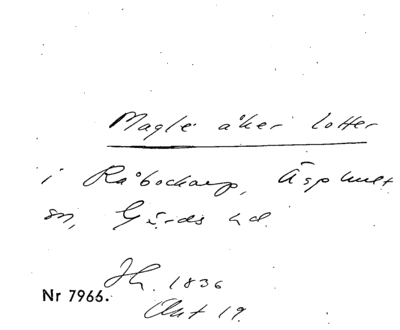 Magle åker lotter
i Råbockarp, Äsphult
sn, Gärds hd.
Hh. 1836
Nr 7966.
Akt 19